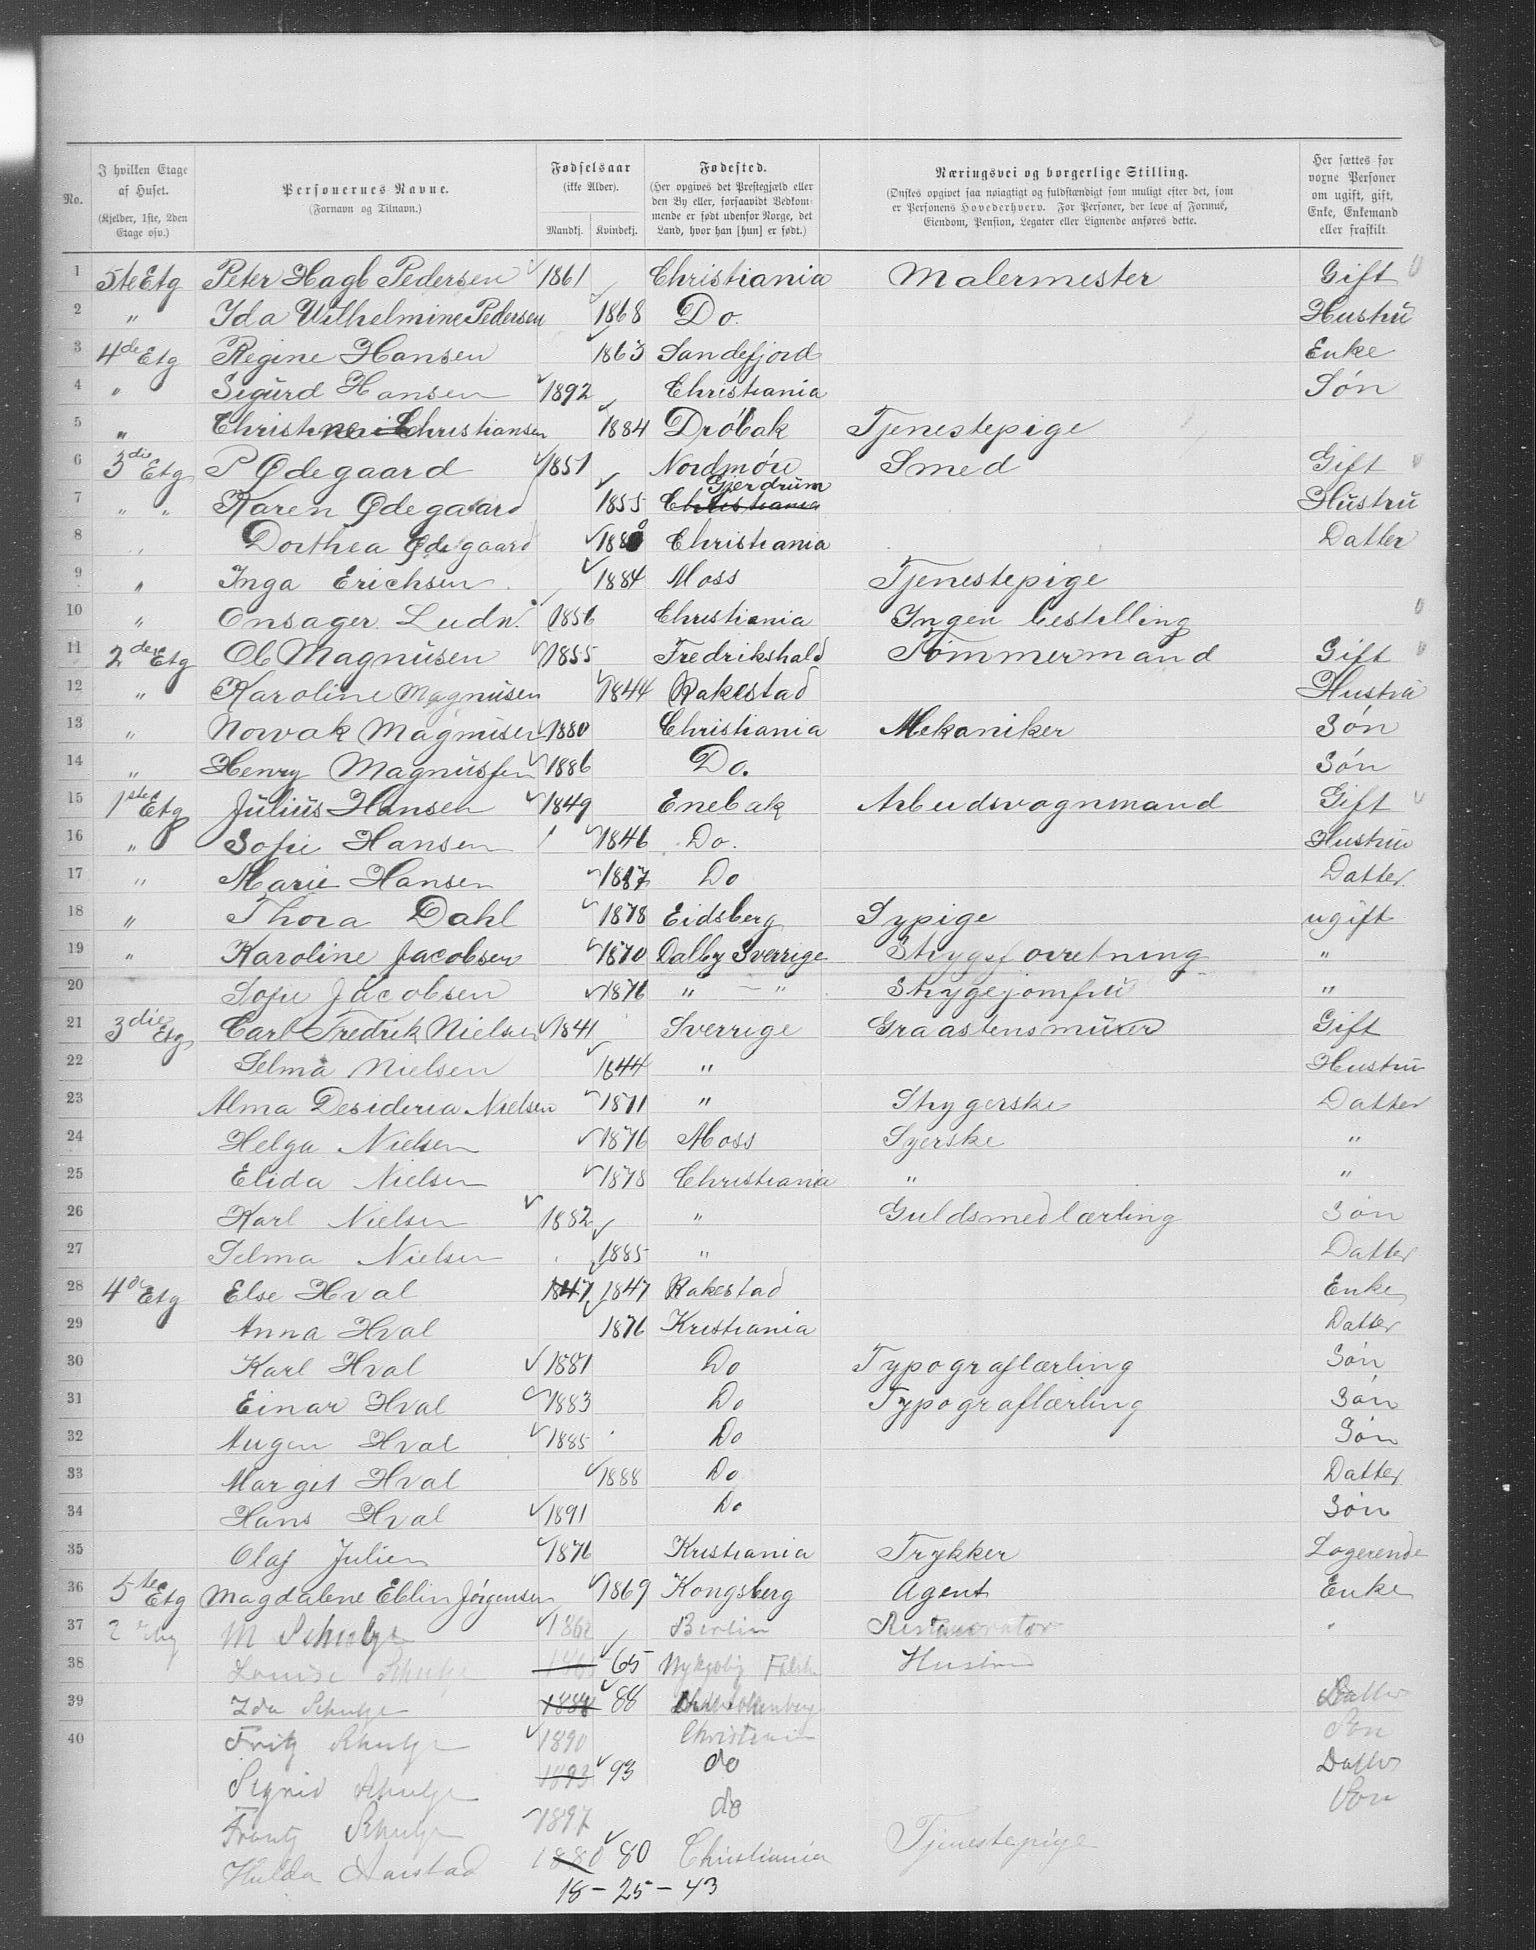 No. | I hvilken Etage af Huset. (Kjelder, 1ste, 2den Etage osv.) | Personernes Navne. (Fornavn og Tilnavn.) | Fødselsaar (ikke Alder). Mandkj. | Kvindekj. | Fødested. (Her opgives det Prestegjæld eller den By eller, forsaavidt Vedkommende er født udenfor Norge, det Land, hvor han [hun] er født.) | Næringsvei og borgerlige Stilling. (Ønskes opgivet saa nøiagtigt og fuldstændigt som muligt efter det, som er Personens Hovederhverv. For Personer, der leve af Formue, Eiendom, Pension, Legater eller Lignende anføres dette.) | Her sættes for voxne Personer om ugift, gift, Enke, Enkemand eller fraskilt
1 5te Etg Peter Hagb Pedersen 1861 Christiania Malermester Gift 0
2 " Ida Wilhelmine Pedersen 1868 Do. Hustru
3 4de Etg Regine Hansen 1863 Sandefjord Enke
4 " Sigurd Hansen 1892 Christiania Søn
5 " Christine Christiansen 1884 Dröbak Tjenestepige
6 3die Etg P Ødegaard 1851 Nordmöre Smed Gift 0
7 " " Karen Ødegaard 1855 Christiania Gjerdrum Hustru
8 " Dorthea Ødegaard 1880 Christiania Datter
9 " Inga Erichsen 1884 Moss Tjenestepige
10 " Onsager Ludv. 1856 Christiania Ingen bestilling 0
11 2den Etg Ol Magnusen 1855 Fredrikshald Tømmermand Gift 0
12 " Karoline Magnusen 1844 Rakestad Hustru
13 " Nowak Magnusen 1880 Christiania Mekaniker Søn
14 " Henry Magnussen 1886 Do. Søn
15 1ste Etg Julius Hansen 1849 Enebak Arbeidsvognmand Gift 0
16 " Sofie Hansen 1846 Do. Hustru
17 " Marie Hansen 1887 Do Datter
18 " Thora Dahl 1878 Eidsberg Sypige ugift
19 " Karoline Jacobsen 1870 Dalby Sverrige Strygeforretning "
20 Sofie Jacobsen 1876 " — " Strygejomfru "
21 3die Etg Carl Fredrik Nielsen 1841 Sverrige Graastensmurer Gift
22 Selma Nielsen 1844 " Hustru
23 Alma Desideria Nielsen 1871 " Strygerske Datter
24 Helga Nielsen 1876 Moss Syerske "
25 Elida Nielsen 1878 Christiania " "
26 Karl Nielsen 1882 " Guldsmedlærling Søn
27 Selma Nielsen 1885 " Datter
28 4de Etg Else Hval 1847 1847 Rakestad Enke
29 Anna Hval 1876 Kristiania Datter
30 Karl Hval 1881 Do Typograflærling Søn
31 Einar Hval 1883 Do Typograflærling Søn
32 Augen Hval 1885 Do Søn
33 Margit Hval 1888 Do Datter
34 Hans Hval 1891 Do Søn
35 Olaf Julien 1876 Kristiania Trykker Logerende
36 5te Etg Magdalene Eblin Jørgensen 1869 Kongsberg Agent Enke
37 2 M Schulze 186 Berlin Restauratør "
38 Louise Schulze 65 Nykjøbig Falst Hustru
39 Ida Schulze 1888 88 Datter
40 Fritz Schulze 1890 Christiania Søn
Sigrid Schulze 1893 93 do Datter
Frantz Schulze 1897 do Søn
Hulda Aarstad 1880 80 Christiania Tjenestepige
18 - 25 - 43